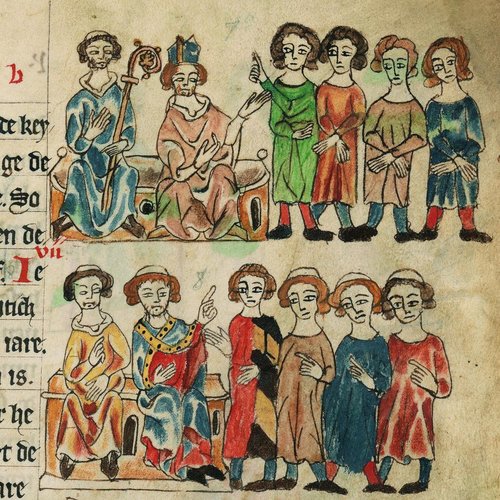 b
de key
ge de
e. So
en de
vii
Ie
ntich
iare.
n is.
r he
et de
are